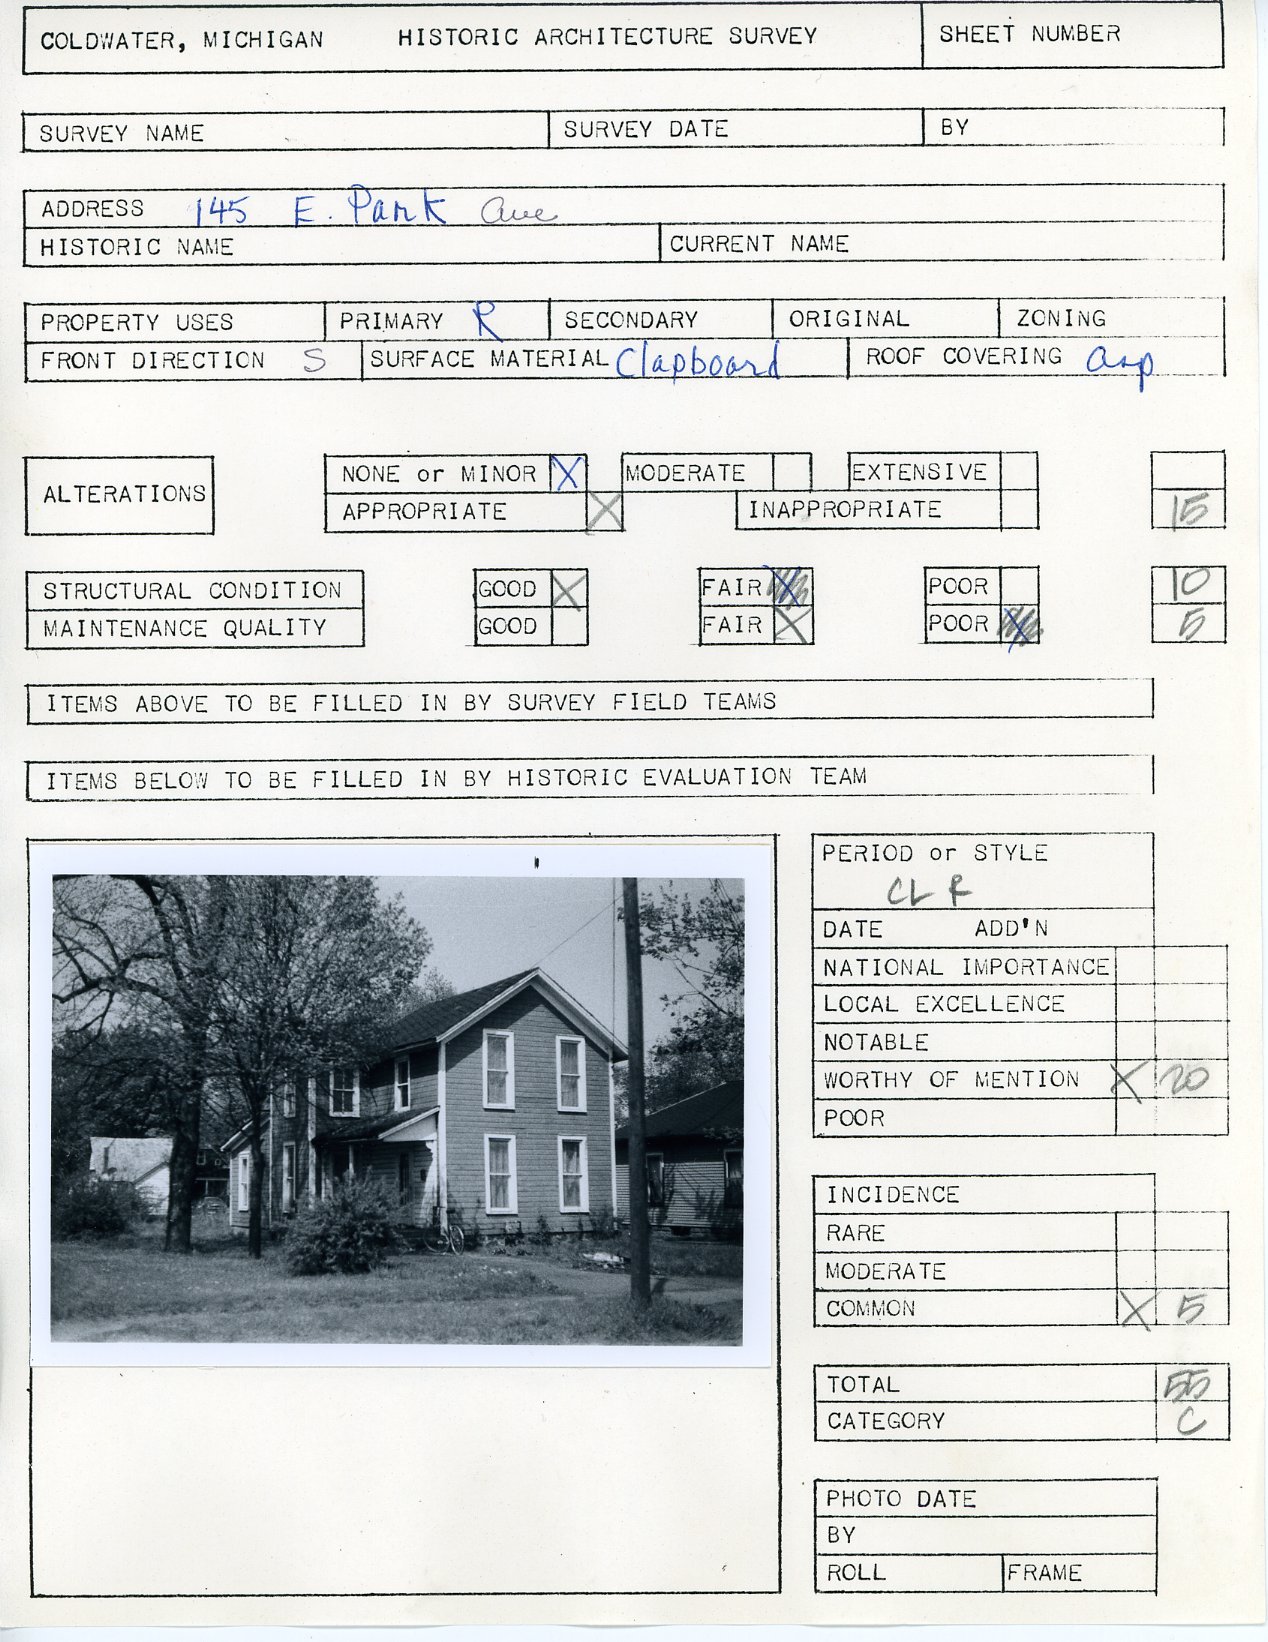 COLDWATER, MICHIGAN HISTORIC ARCHITECTURE SURVEY SHEET NUMBER
SURVEY NAME SURVEY DATE BY
ADDRESS 145 E. Park Ave
HISTORIC NAME CURRENT NAME
PROPERTY USES PRIMARY R SECONDARY ORIGINAL ZONING
FRONT DIRECTION S SURFACE MATERIAL Clapboard ROOF COVERING asp
ALTERATIONS
NONE or MINOR X MODERATE EXTENSIVE
APPROPRIATE X INAPPROPRIATE 15
STRUCTURAL CONDITION GOOD X FAIR X POOR 10
MAINTENANCE QUALITY GOOD FAIR X POOR X 5
ITEMS ABOVE TO BE FILLED IN BY SURVEY FIELD TEAMS
ITEMS BELOW TO BE FILLED IN BY HISTORIC EVALUATION TEAM
PERIOD or STYLE
CL R
DATE ADD'N
NATIONAL IMPORTANCE
LOCAL EXCELLENCE
NOTABLE
WORTHY OF MENTION X 20
POOR
INCIDENCE
RARE
MODERATE
COMMON X 5
TOTAL 55
CATEGORY C
PHOTO DATE
BY
ROLL FRAME